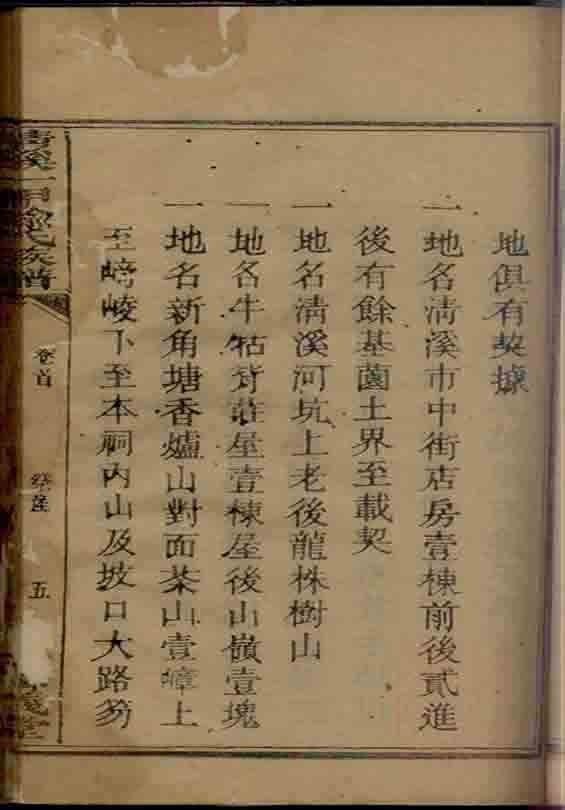 地俱有契據
一地名清溪市中街店房壹棟前後貳進
後有餘基薗土界至載契
一地名清溪河坑上老後龍株樹山
一地名牛牯背莊屋壹棟屋後山嶺壹塊
一地名新角塘香爐山對面茶山壹嶂上
至崎崚下至本祠內山及坡口大路旁
清溪一甲徐氏族譜
卷首
五
堂